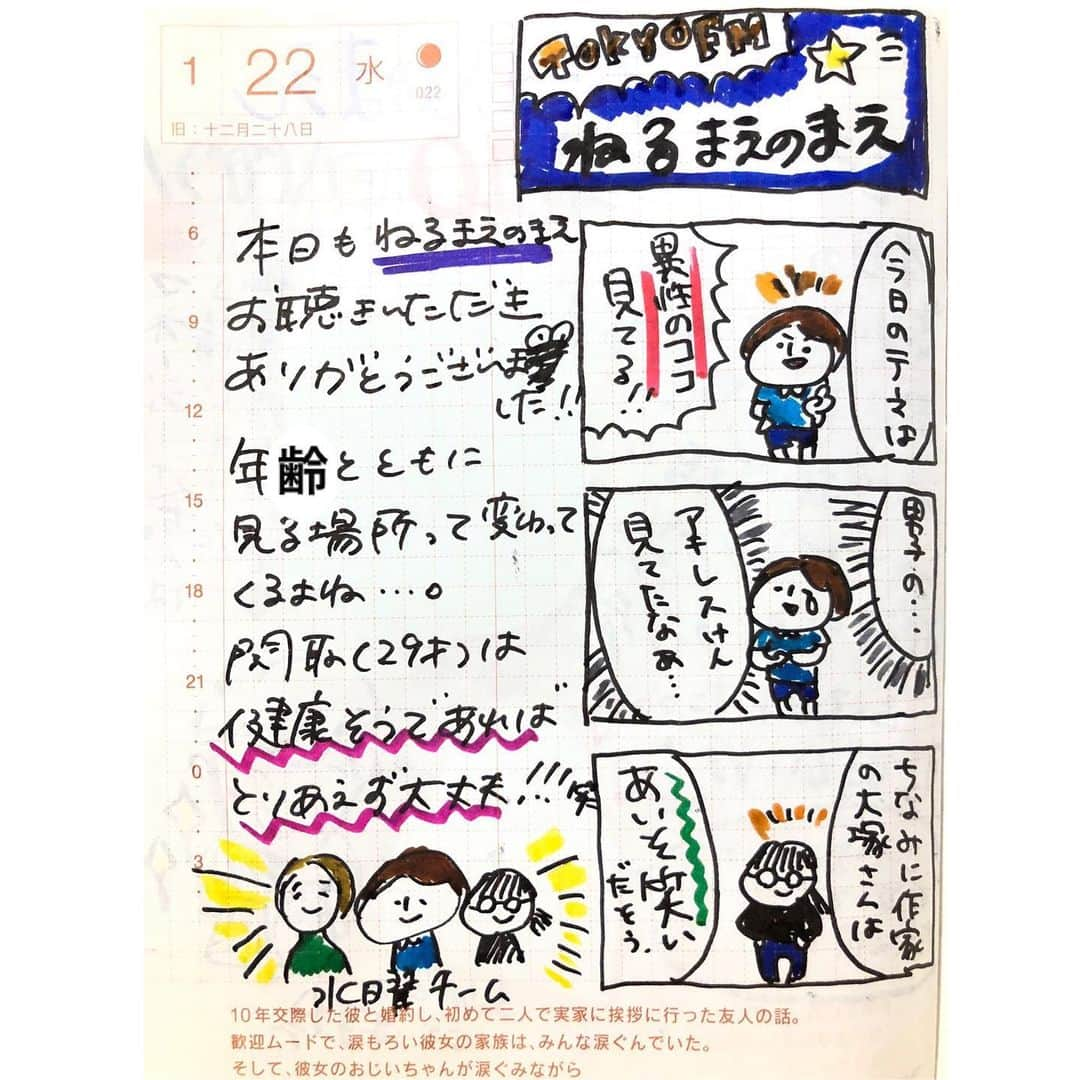 1 22 水
022
旧：十二月二十八日
TOKYO FM
ねるまえのまえ
6
9
12
15
18
21
0
3
本日もねるまえのまえ
お聴きいただき
ありがとうございま
した!!
年齢とともに
見る場所って変わって
くるよね…。
関取(29才)は
健康そうであれば
とりあえず大丈夫!!!笑
水曜チーム
今日のテーマは
異性のココ
見てる!!
男子の…
アキレスけん
見てたなあ…
ちなみに作家
の大塚さんは
あいそ笑い
だそう.
10年交際した彼と婚約し、初めて二人で実家に挨拶に行った友人の話。
歓迎ムードで、涙もろい彼女の家族は、みんな涙ぐんでいた。
そして、彼女のおじいちゃんが涙ぐみながら